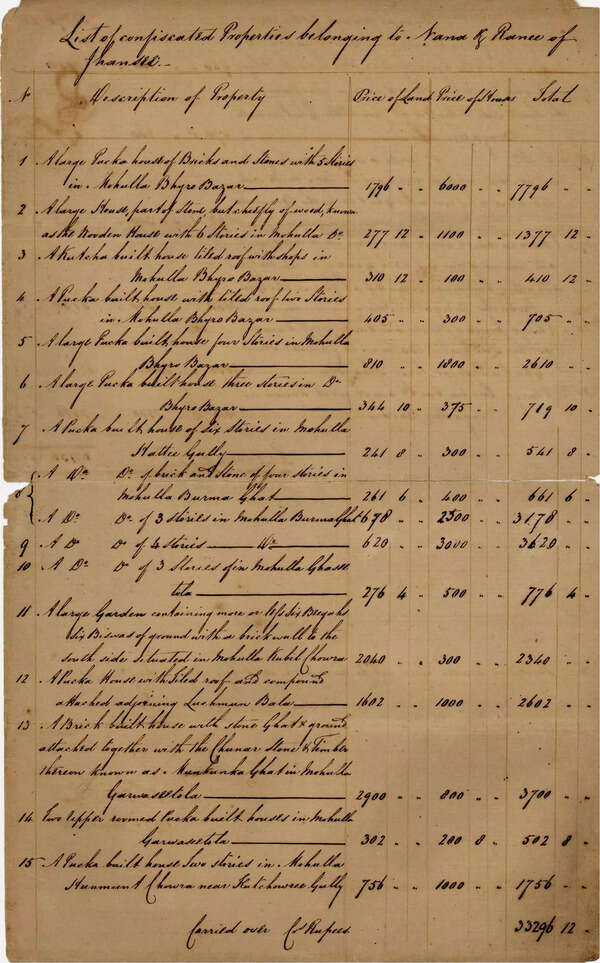 List of confiscated Properties belonging to Nana & Ranee of
Jhansee.—
No Description of Property Price of Land Price of House Total
1 A large Pucka house of Bricks and Stones with 5 Stories
in Mohulla Bhyro Bazar 1796 " " 6000 " " 7796 " "
2 A large House, part of Stone, but cheefly of wood, known
as the Wooden House with 6 Stories in Mohulla Do 277 12 " 1100 " " 1377 12 "
3 A Kutcha built house tiled roof with shops in
Mohulla Bhyro Bazar 310 12 " 100 " " 410 12 "
4 A Pucka built house with tiled roof two Stories
in Mohulla Bhyro Bazar 405 " " 300 " " 705 " "
5 A large Pucka built house four Stories in Mohulla
Bhyro Bazar 810 " " 1800 " " 2610 " "
6 A large Pucka built house three stories in Do
Bhyro Bazar 344 10 " 375 " " 719 10 "
7 A Pucka built house of Six Stories in Mohulla
Hattee Gully 241 8 " 300 " " 541 8 "
8 A Do Do of brick and Stone of four stories in
Mohulla Burma Ghat 261 6 " 400 " " 661 6 "
A Do Do of 3 stories in Mohulla Burma Ghat 678 " " 2500 " " 3178 " "
9 A D D of 4 Stories Do 620 " " 3000 " " 3620 " "
10 A Do D of 3 Stories in Mohulla Ghasee
tola 276 4 " 500 " " 776 4 "
11 A large Garden containing more or less Six Beegahs
Six Biswas of ground with a brick wall to the
south side situated in Mohulla Kubil Chowra 2040 " " 300 " " 2340 " "
12 A Pucka House with tiled roof and compound
attached adjoining Luchman Bala 1602 " " 1000 " " 2602 " "
13 A Brick built house with stone Ghat & ground
attached together with the Chunar Stone & Timber
thereon known as Munkunka Ghat in Mohulla
Garwaseetola 2900 " " 800 " " 3700 " "
14 Two Upper roomed Pucka built houses in Mohulla
Garwaseetola 302 " " 200 8 " 502 8 "
15 A Pucka built house two stories in Mohulla
Hunmunt Chowra near Kutchowree Gully 756 " " 1000 " " 1756 " "
Carried over Co Rupees 33296 12 "